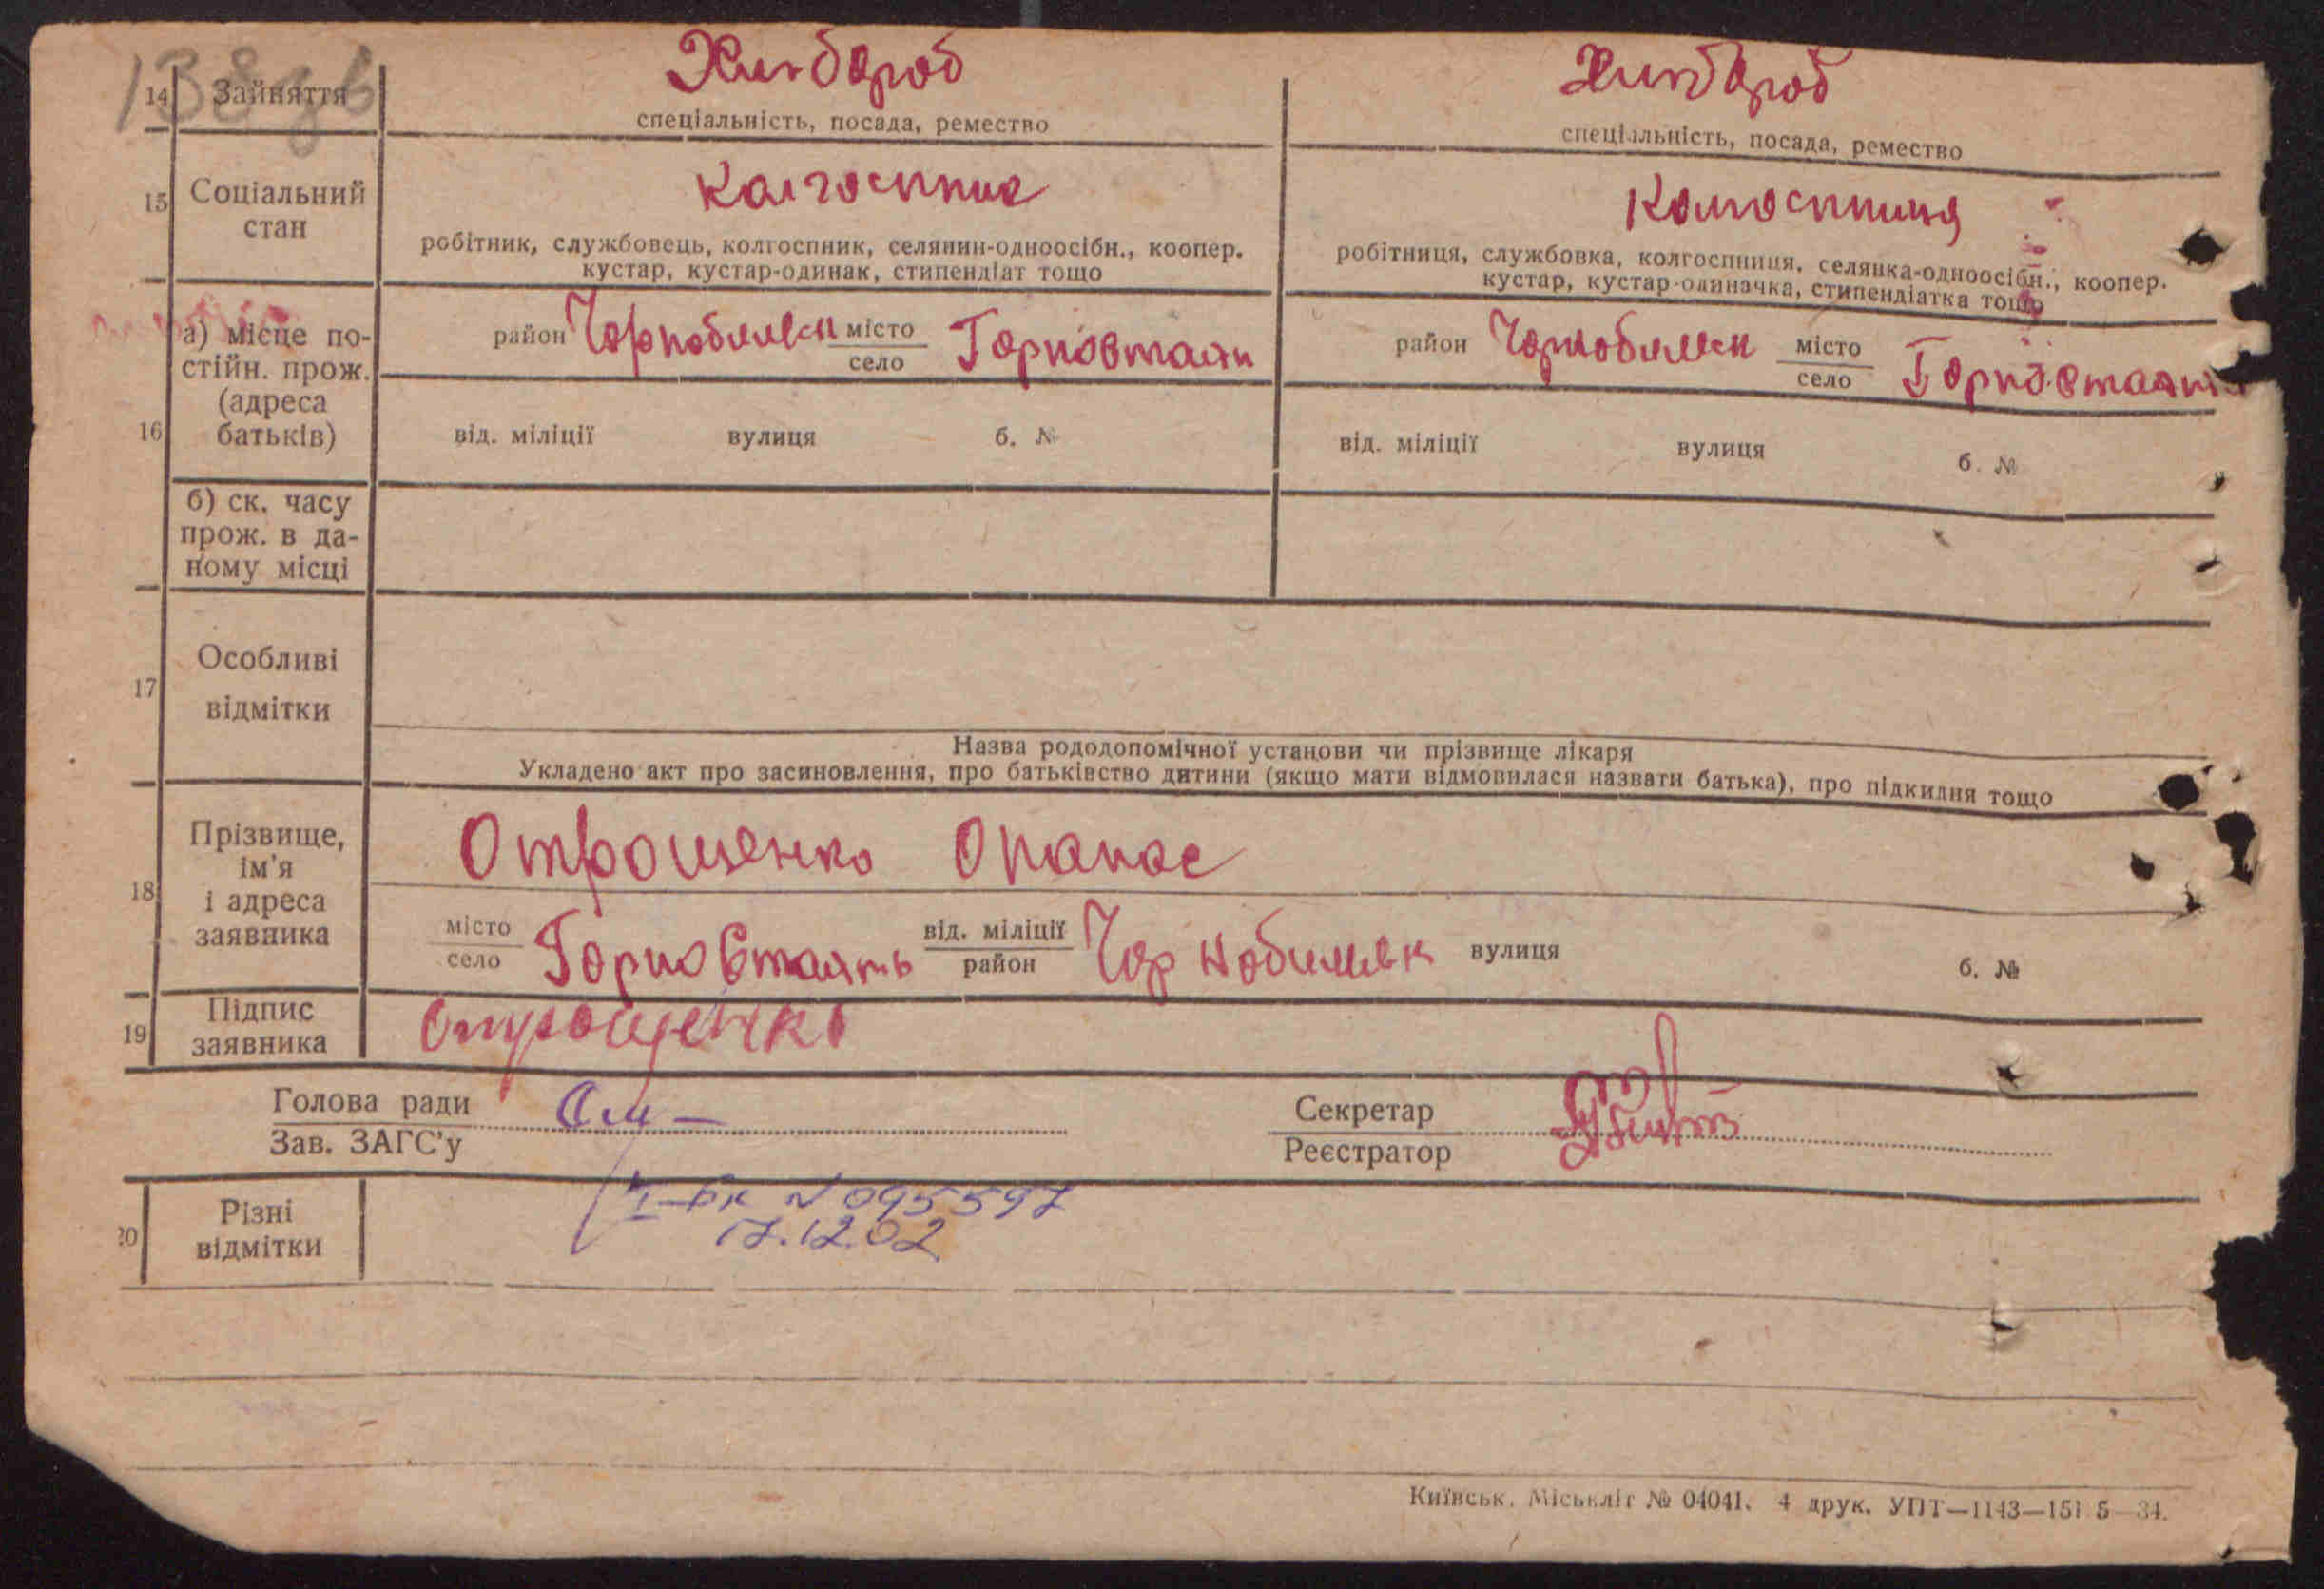 138 зв
14 Зайняття
Хлібороб
Хлібороб
спеціальність, посада, ремество
спеціальність, посада, ремество
15 Соціальний стан
Колгоспник
Колгоспниця
робітник, службовець, колгоспник, селянин-одноосібн., коопер.
кустар, кустар-одинак, стипендіат тощо
робітниця, службовка, колгоспниця, селянка-одноосібн., коопер.
кустар, кустар-одиначка, стипендіатка тощо
16 а) місце по-
стійн. прож.
(адреса
батьків)
район Чорнобильськ місто село Горностаяп
район Чорнобильськ місто село Горностаяп
від. міліції вулиця б. №
від. міліції вулиця б. №
б) ск. часу
прож. в да-
ному місці
17 Особливі
відмітки
Назва рододопомічної установи чи прізвище лікаря
Укладено акт про засиновлення, про батьківство дитини (якщо мати відмовилася назвати батька), про підкидня тощо
18 Прізвище,
ім'я
і адреса
заявника
Отрощенко Опанас
місто село Горностаять від. міліції район Чорнобильськ вулиця б. №
19 Підпис
заявника
Отрощенко
Голова ради
Зав. ЗАГС'у
Секретар
Реєстратор
20 Різні
відмітки
І-БК № 095597
17.12.02
Київськ. Міськліт № 04041. 4 друк. УПТ—1143—151 5—34.